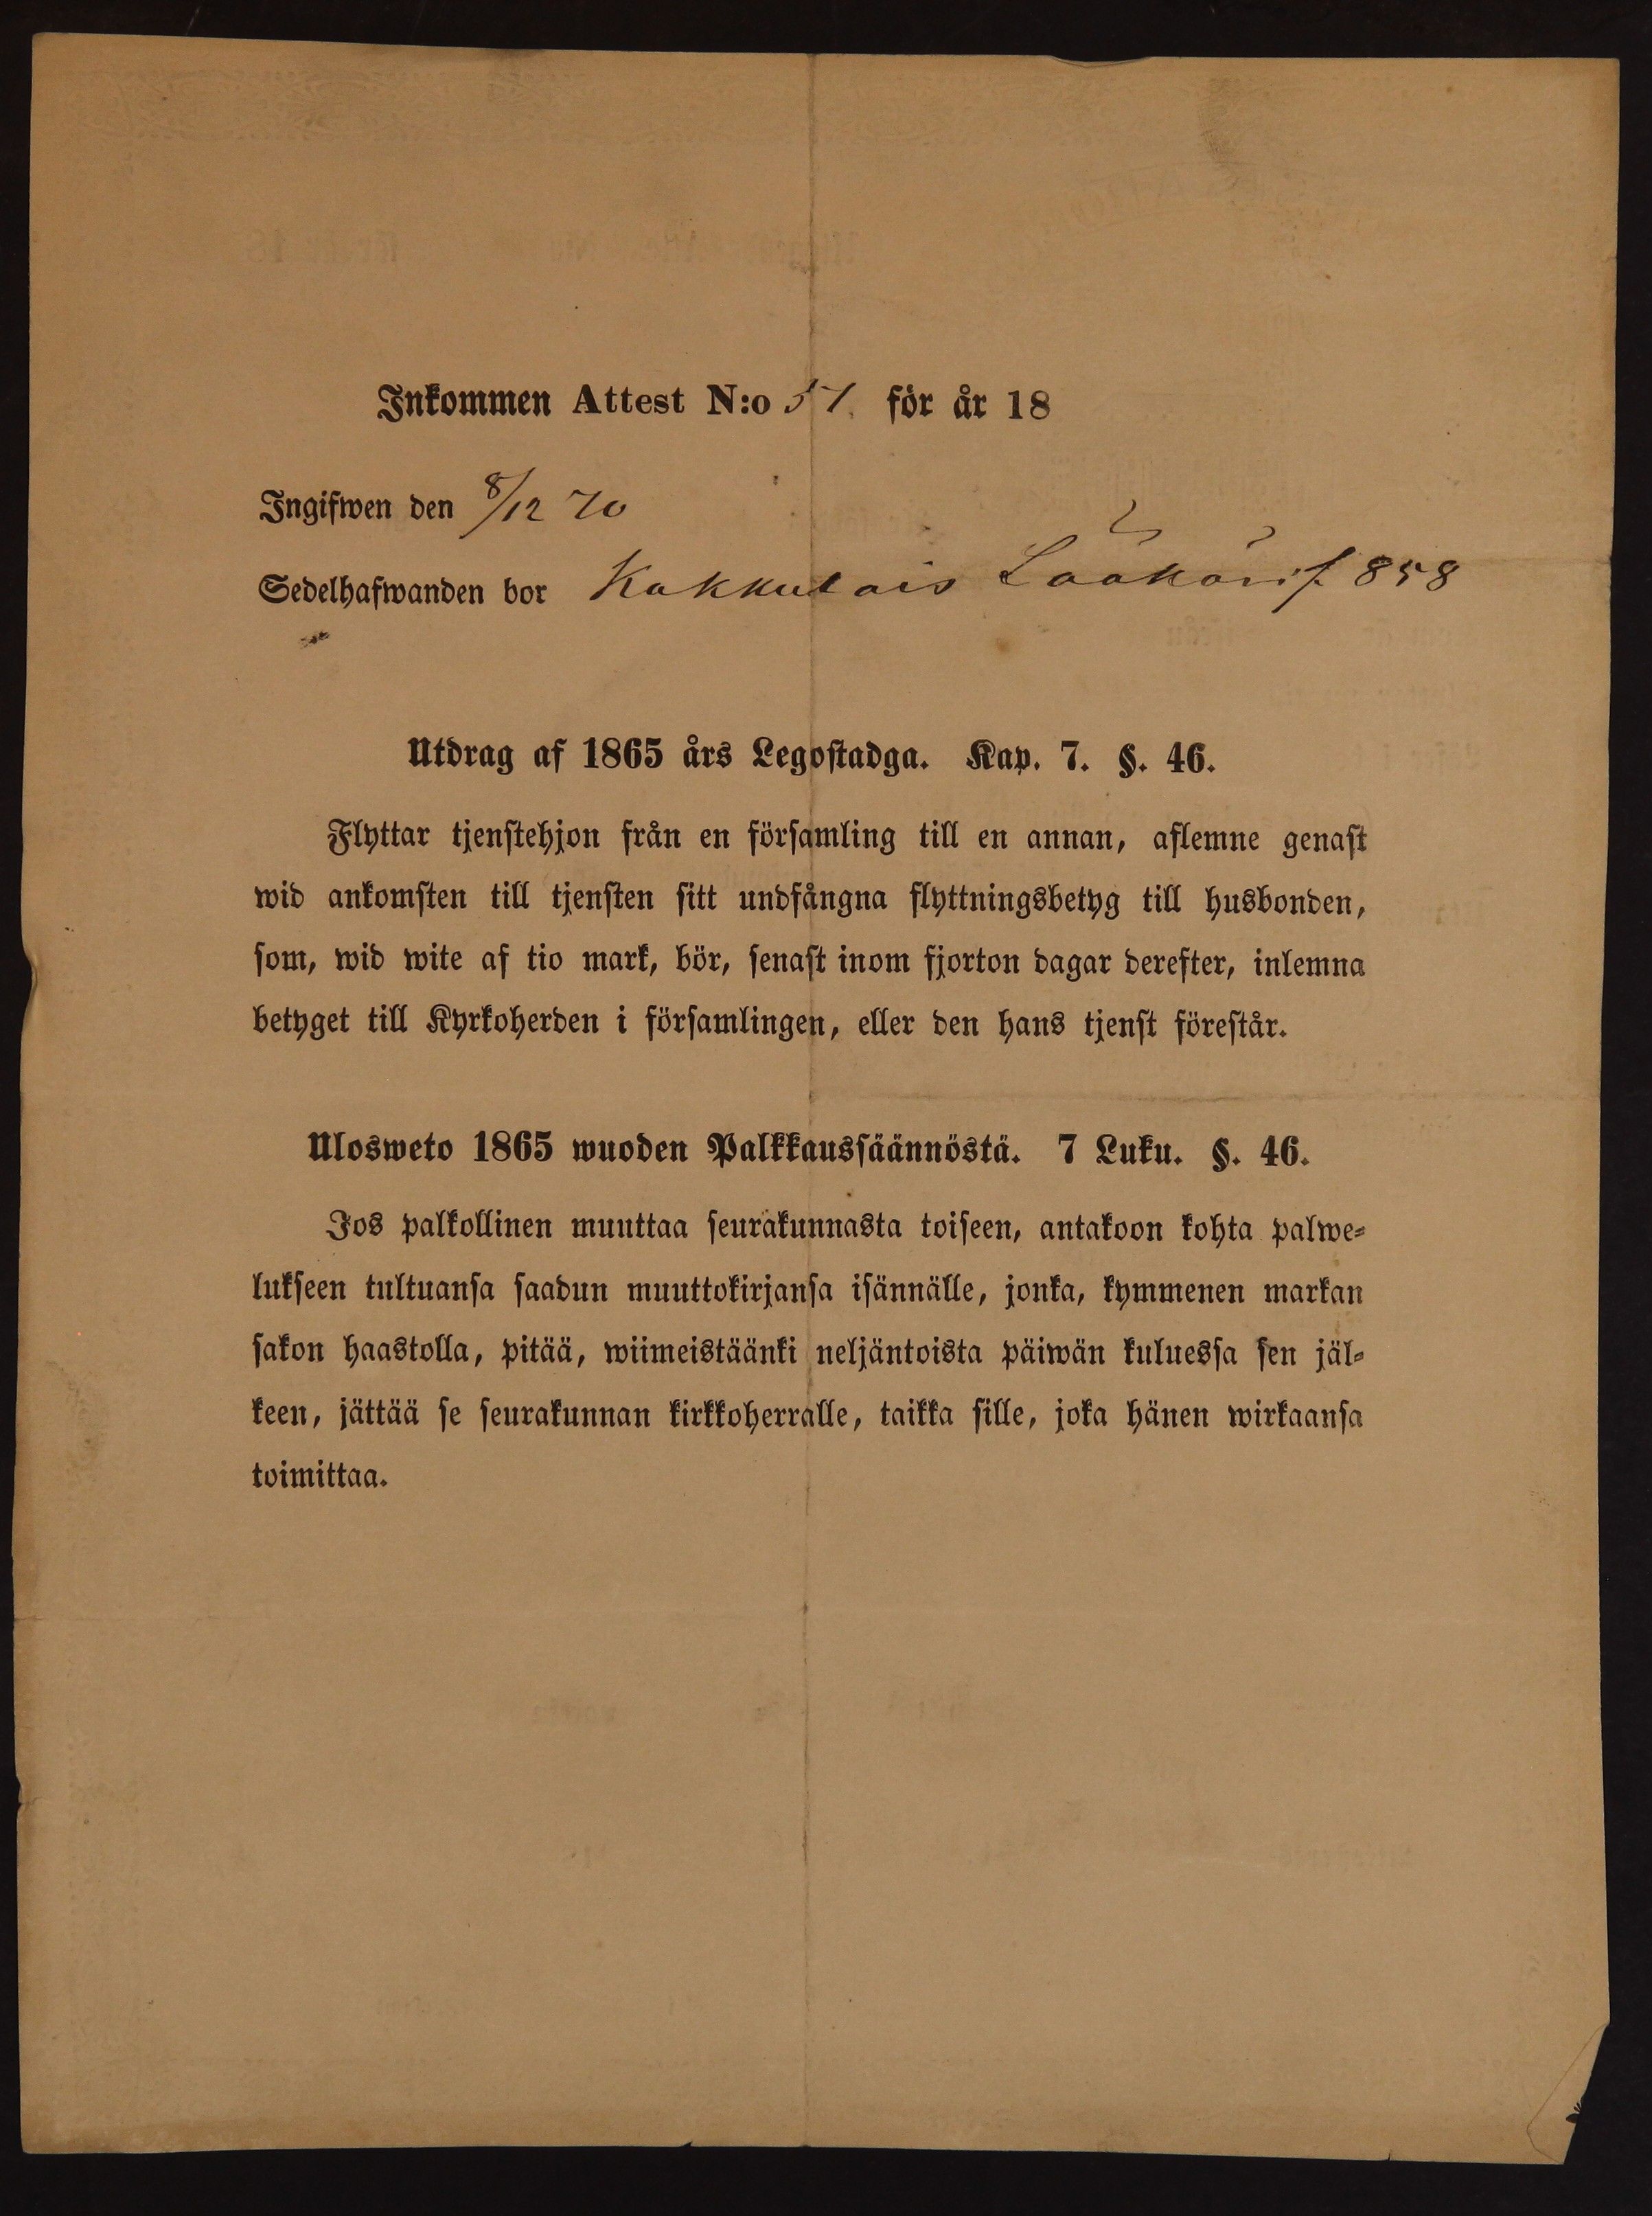 Inkommen Attest N:o 51. för år 18
Ingifwen den 8/12 70
Sedelhafwanden bor Kakkulais 858
Utdrag af 1865 års Legostadga. Kap. 7. §. 46.
Flyttar tjenstehjon från en församling till en annan, aflemne genast
wid ankomsten till tjensten sitt undfångna flyttningsbetyg till husbonden,
som, wid wite af tio mark, bör, senast inom fjorton dagar derefter, inlemna
betyget till Kyrkoherden i församlingen, eller den hans tjenst förestår.
Ulosweto 1865 wuoden Palkkaussäännöstä. 7 Luku. §. 46.
Jos palkollinen muuttaa seurakunnasta toiseen, antakoon kohta palwe-
lukseen tultuansa saadun muuttokirjansa isännälle, jonka, kymmenen markan
sakon haastolla, pitää, wiimeistäänki neljäntoista päiwän kuluessa sen jäl-
keen, jättää se seurakunnan kirkkoherralle, taikka sille, joka hänen wirkaansa
toimittaa.